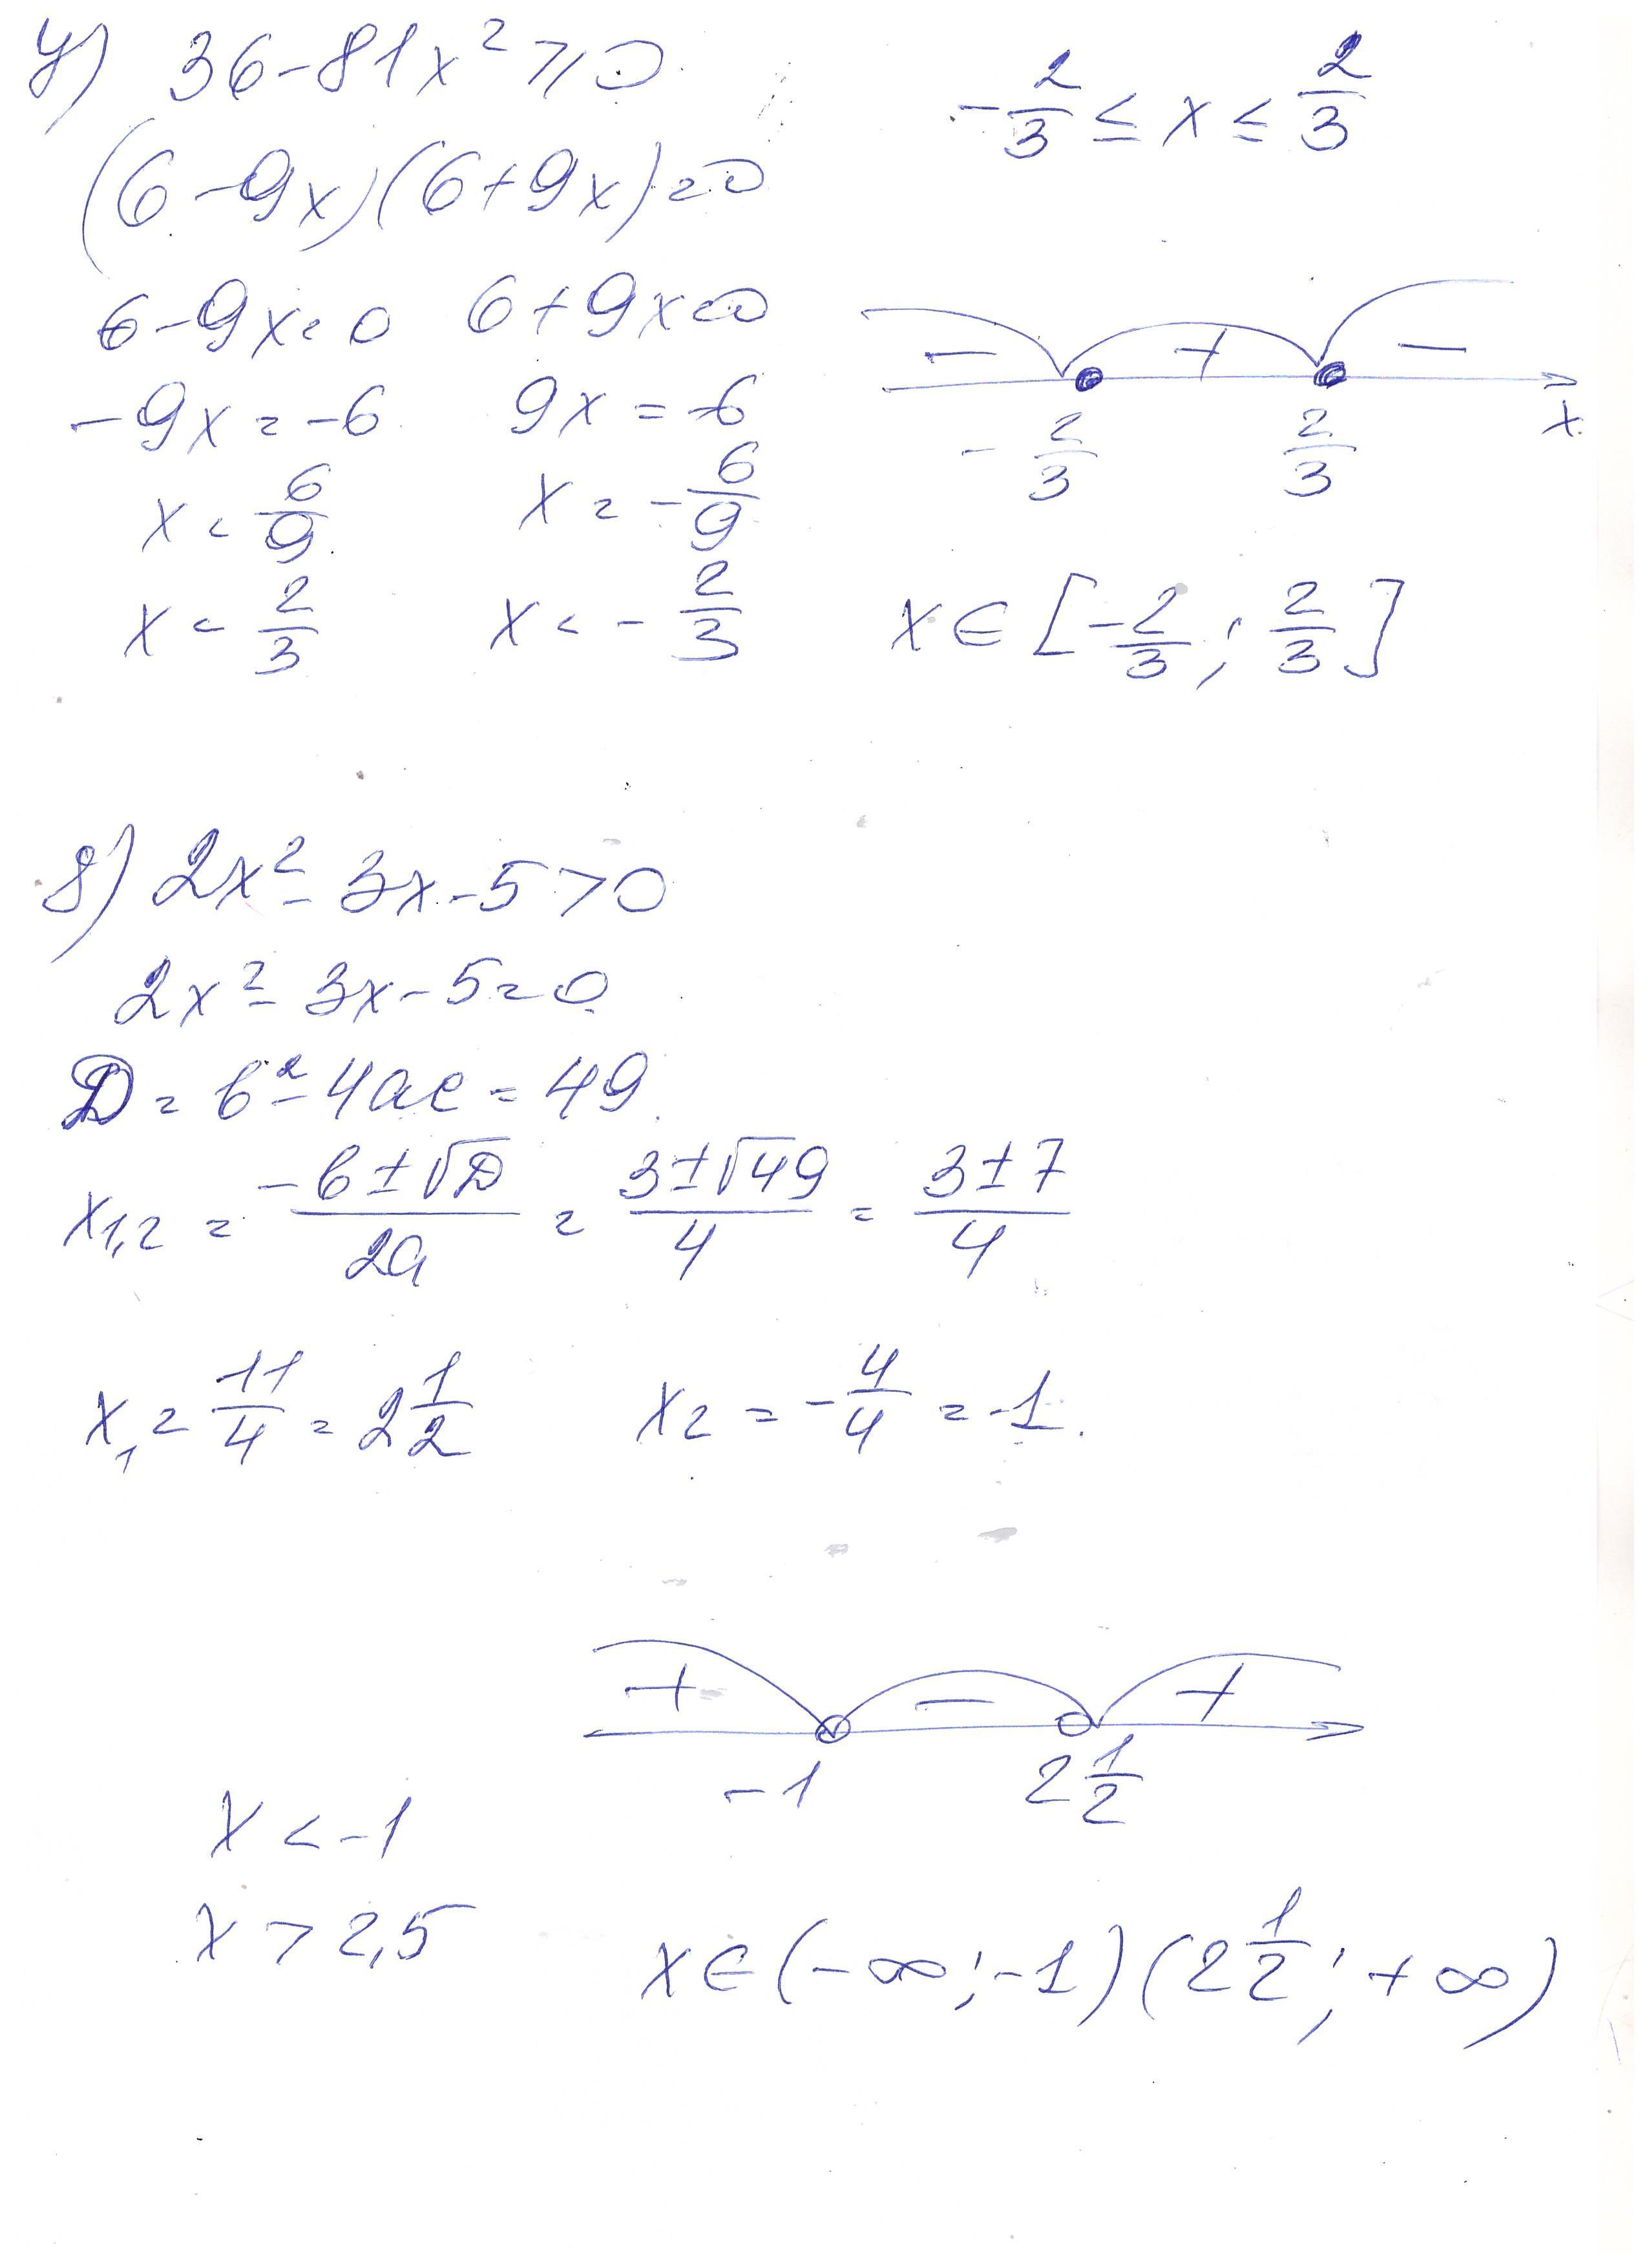 у) 36-81x² ⩾ 0
(6-9x)(6+9x)=0
6-9x=0 6+9x=0
-9x=-6 9x=-6
x=6/9 x=-6/9
x=2/3 x=-2/3
-2/3 ≤ x ≤ 2/3
- + -
-2/3 2/3 x
x∈[-2/3; 2/3]
8) 2x²-3x-5>0
2x²-3x-5=0
D=b²-4ac=49
x1,2 = -b±√D/2a = 3±√49/4 = 3±7/4
x1=11/4=2 1/2 x2=-4/4=-1.
+ - +
-1 2 1/2
x<-1
x>2,5
x∈(-∞;-1)(2 1/2;+∞)